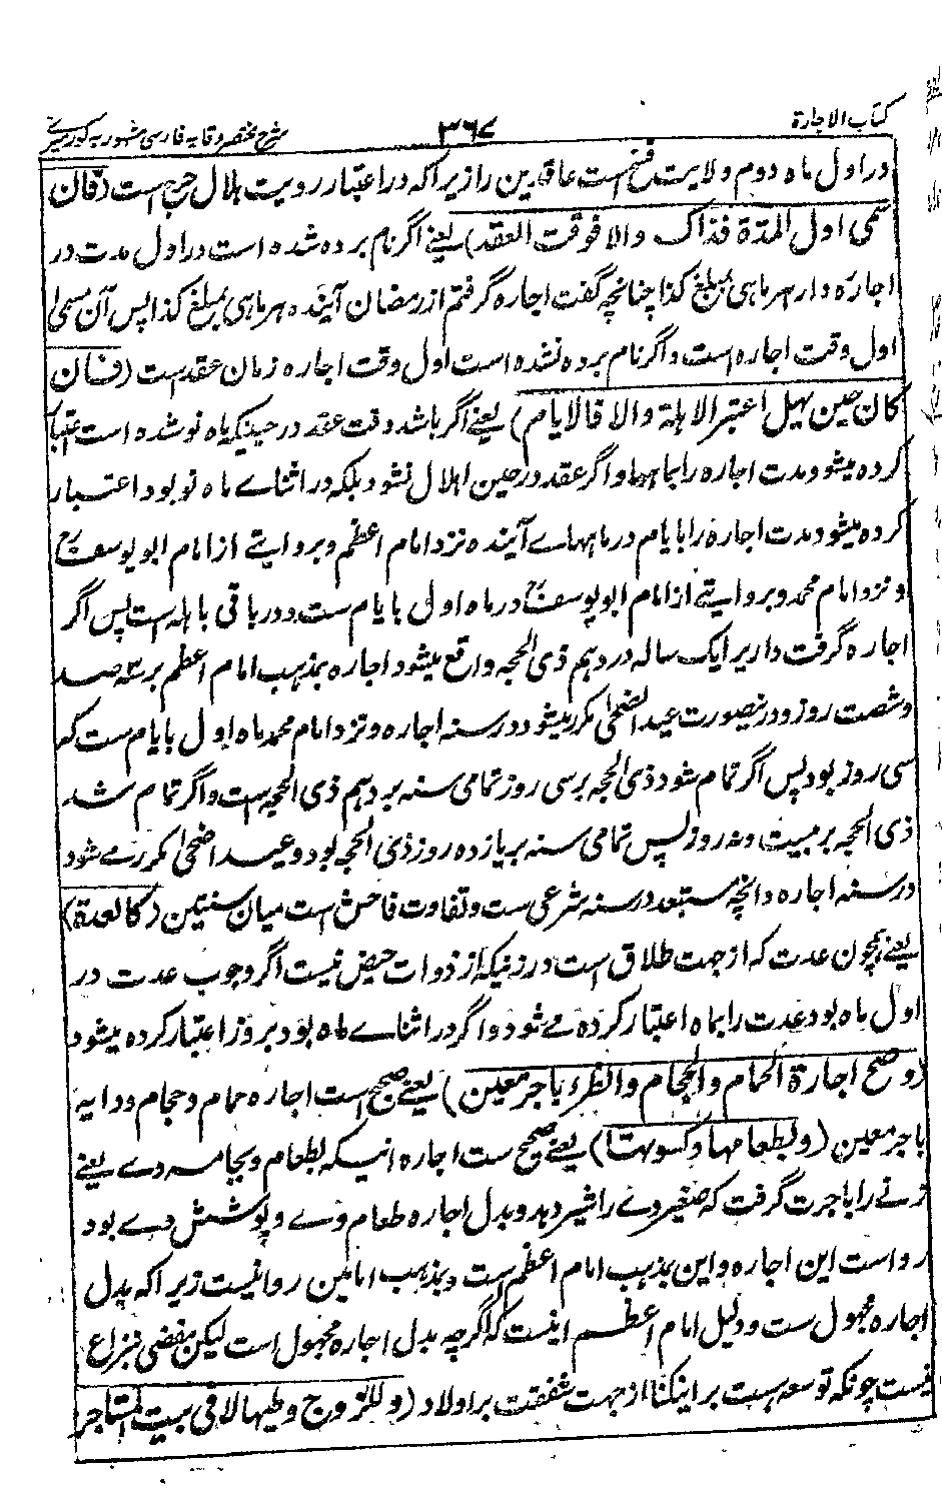 کتاب الاجارة ۳۶۷ شرح مختصر وقایه فارسی مشهور به کورمیری
در اول ماه دوم ولایت فسخ است عاقدین را زیرا که در اعتبار رویت ہلال حرج است (فان
سمی اول المدة فذاک والا فوقت العقد) یعنے اگر نام برده شده است در اول مدت در
اجاره دار ہر ماہی بمبلغ کذا چنانچه گفت اجاره گرفتم از رمضان آینده ہر ماہی بمبلغ کذا پس آن مسمی
اول وقت اجاره است و اگر نام برده نشده است اول وقت اجاره زمان عقدست (فان
کان حین یہل اعتبر الاہلة والا فالایام) یعنے اگر باشد وقت عقد در حینیکه ماه نو شده است اعتبار
کرده میشود مدت اجاره را بماہہا و اگر عقد در حین اہلال نشود بلکه در اثناے ماه نو بود اعتبار
کرده میشود مدت اجاره را بایام در ماہہاے آینده نزد امام اعظم و بروایتے از امام ابو یوسف رح
و نزد امام محمد و بروایتے از امام ابو یوسف رح در ماه اول بایام ست و در باقی باہله است پس اگر
اجاره گرفت دار بر ایک ساله در دہم ذی الحجه واقع میشود اجاره بمذہب امام اعظم بر سه صد
و شصت روز و درینصورت عید الضحی مکرر میشود در سنه اجاره و نزد امام محمد ماه اول بایام ست که
سی روز بود پس اگر تمام شود ذی الحجه بر سی روز تمامی سنه بر دہم ذی الحجه است و اگر تمام شد
ذی الحجه بر بیست و نه روز پس تمامی سنه بر یازده روز ذی الحجه بود و عید اضحی مکرر مے شود
در سنه اجاره و انچه مستبعد در سنه شرعی ست و تفاوت فاحش است میان سنتین (کالعدة)
یعنے ہمچون عدت که از جہت طلاق است در زنیکه از ذوات حیض نیست اگر وجوب عدت در
اول ماه بود عدت را بماه اعتبار کرده مے شود و اگر در اثناے ماه بود بروز اعتبار کرده میشود
(وصح اجارة الحمام والحجام والظئر باجر معین) یعنے صحیح است اجاره حمام و حجام و دایه
باجر معین (وبطعامہا وکسوتہا) یعنے صحیح ست اجاره انیکه بطعام و بجامه وے یعنے
زنے را باجرت گرفت که صغیر وے را شیر دہد و بدل اجاره طعام وے و پوشش وے بود
رواست این اجاره و این بمذہب امام اعظم ست و بمذہب امامین روا نیست زیرا که بدل
اجاره مجہول ست و دلیل امام اعظم اینست که اگرچه بدل اجاره مجہول است لیکن مفضی بنزاع
نیست چونکه توسعه است بر اینکنا از جہت شفقت بر اولاد (وللزوج وطیہا لا فی بیت المستاجر